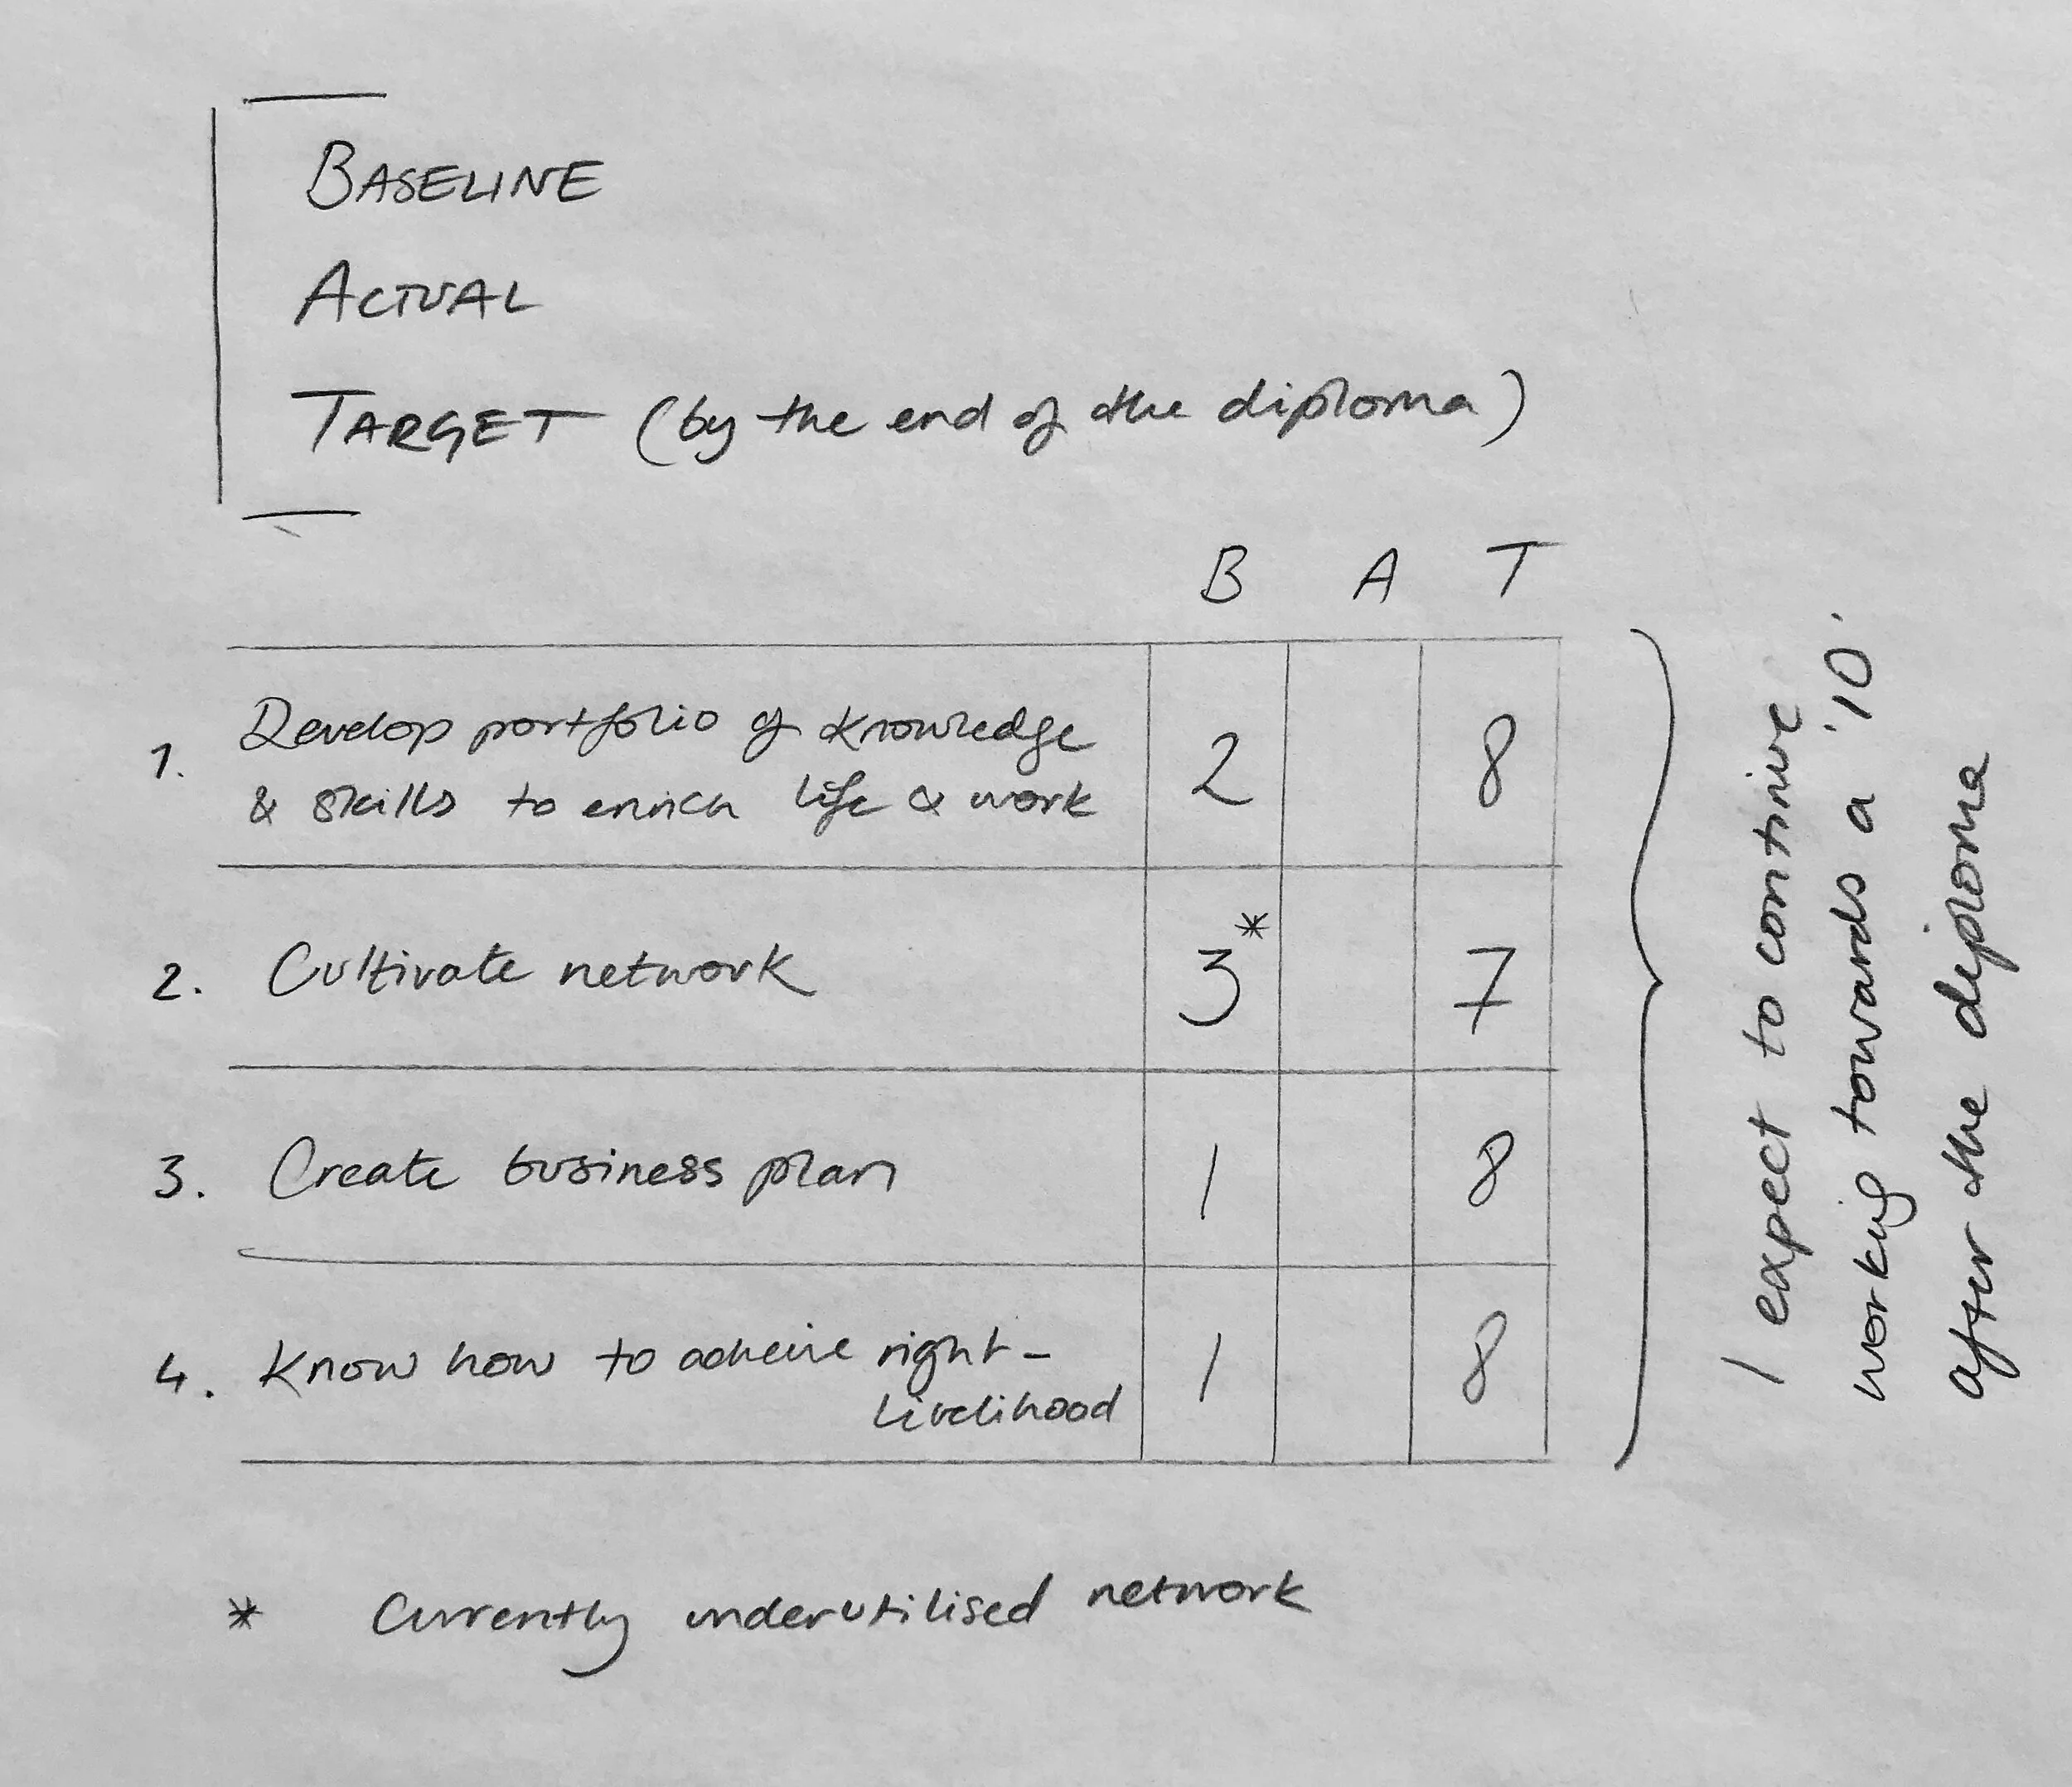 BASELINE
ACTUAL
TARGET (by the end of the diploma)
B A T
1. Develop portfolio of knowledge
& skills to enrich life & work 2 8
2. Cultivate network 3* 7
3. Create business plan 1 8
4. Know how to acheive right-
livelihood 1 8
I expect to continue
working towards a '10'
after the diploma
* Currently underutilised network